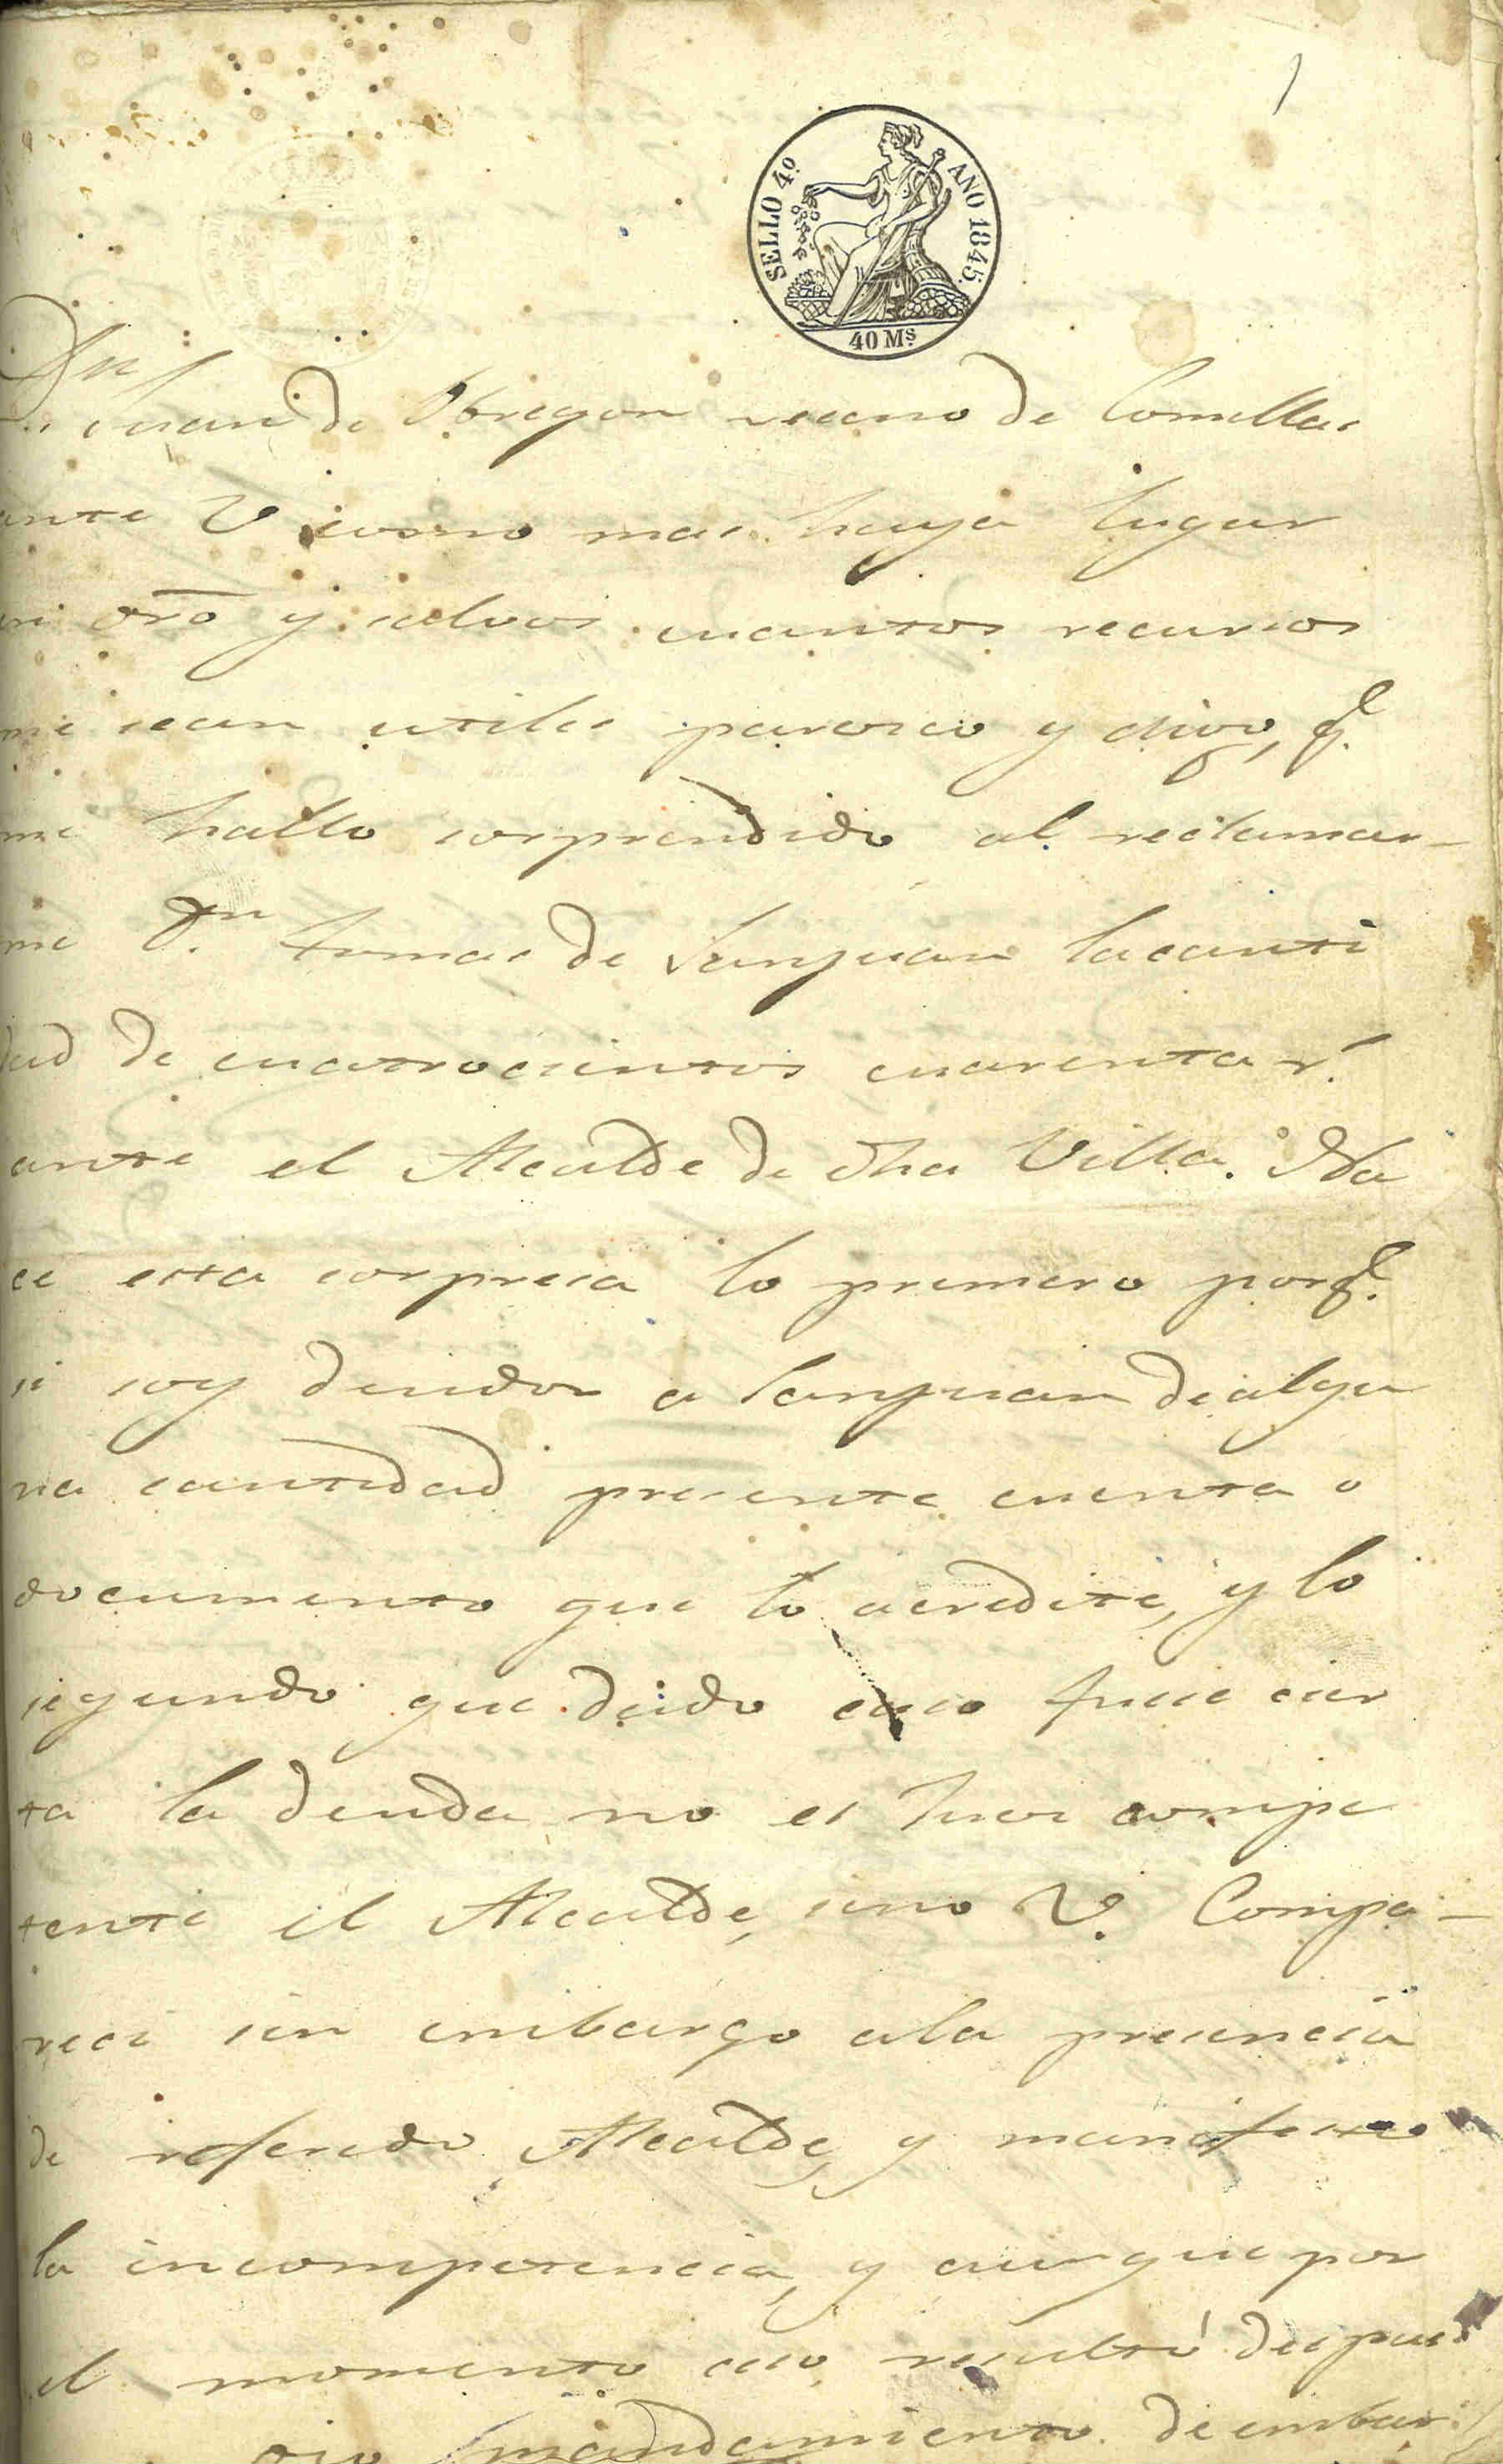 1
SELLO 4º AÑO 1845.
40 Ms
Dn Juan de Obregon vecino de Comillas
ante V como mas haya lugar
en dro y salvos cuantos recursos
me sean utiles parezco y digo, q.
me hallo sorprendido al reclamar-
me Dn Tomas de Sanjuan la canti
dad de cuatrocientos cuarenta r.
ante el Alcalde de dha Villa. Na
ce esta sorpresa lo primero porq.
si soy deudor a Sanjuan de algu
na cantidad presente cuenta o
documento que lo acredite, y lo
segundo que dado caso fuese cier
ta la deuda no es Juez compe
tente el Alcalde, sino V. Compa-
reci sin embargo a la presencia
de referido Alcalde, y manifeste
la incompetencia, y aunque por
el momento ceso, resultó despues
mandamiento de embar